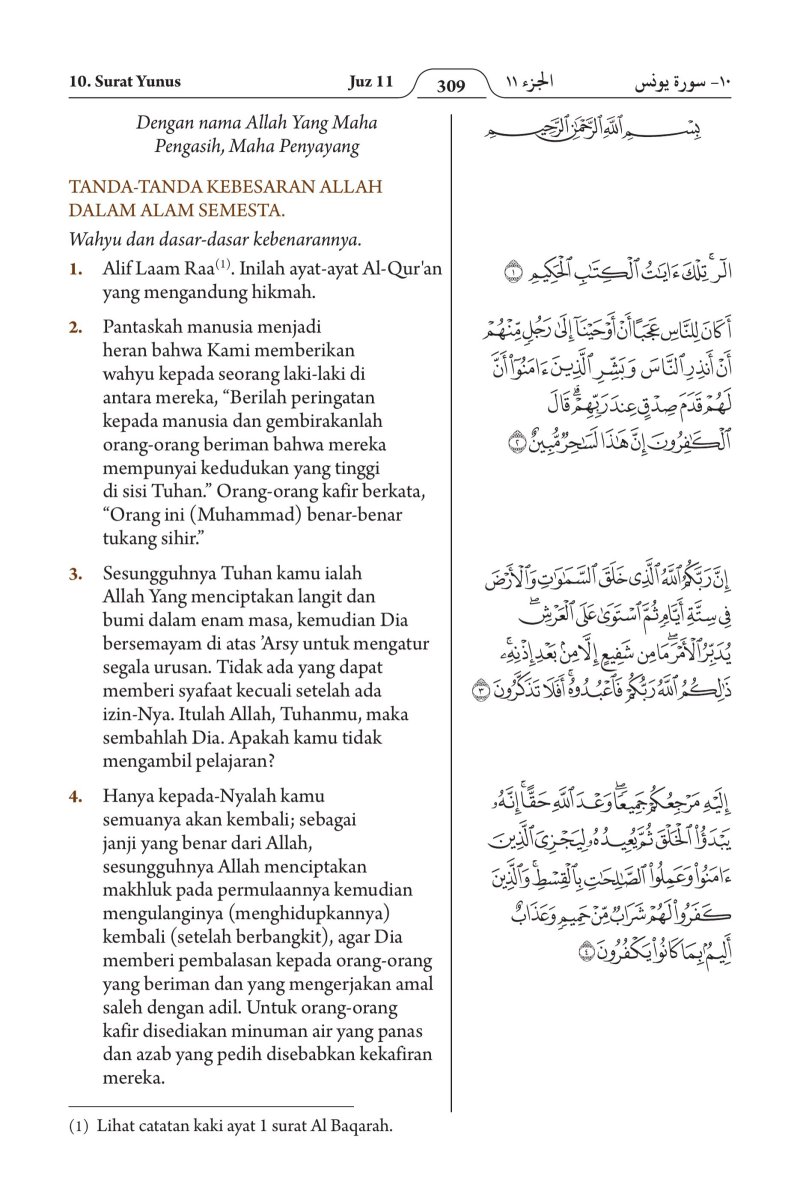 10. Surat Yunus
Juz 11
309
الجزء ١١
١٠- سورة يونس
Dengan nama Allah Yang Maha
Pengasih, Maha Penyayang
TANDA-TANDA KEBESARAN ALLAH
DALAM ALAM SEMESTA.
Wahyu dan dasar-dasar kebenarannya.
1. Alif Laam Raa(1). Inilah ayat-ayat Al-Qur'an
yang mengandung hikmah.
2. Pantaskah manusia menjadi
heran bahwa Kami memberikan
wahyu kepada seorang laki-laki di
antara mereka, “Berilah peringatan
kepada manusia dan gembirakanlah
orang-orang beriman bahwa mereka
mempunyai kedudukan yang tinggi
di sisi Tuhan.” Orang-orang kafir berkata,
“Orang ini (Muhammad) benar-benar
tukang sihir.”
3. Sesungguhnya Tuhan kamu ialah
Allah Yang menciptakan langit dan
bumi dalam enam masa, kemudian Dia
bersemayam di atas ’Arsy untuk mengatur
segala urusan. Tidak ada yang dapat
memberi syafaat kecuali setelah ada
izin-Nya. Itulah Allah, Tuhanmu, maka
sembahlah Dia. Apakah kamu tidak
mengambil pelajaran?
4. Hanya kepada-Nyalah kamu
semuanya akan kembali; sebagai
janji yang benar dari Allah,
sesungguhnya Allah menciptakan
makhluk pada permulaannya kemudian
mengulanginya (menghidupkannya)
kembali (setelah berbangkit), agar Dia
memberi pembalasan kepada orang-orang
yang beriman dan yang mengerjakan amal
saleh dengan adil. Untuk orang-orang
kafir disediakan minuman air yang panas
dan azab yang pedih disebabkan kekafiran
mereka.
بِسْمِ ٱللَّهِ ٱلرَّحْمَٰنِ ٱلرَّحِيمِ
الٓر ۚ تِلْكَ ءَايَٰتُ ٱلْكِتَٰبِ ٱلْحَكِيمِ ١
أَكَانَ لِلنَّاسِ عَجَبًا أَنْ أَوْحَيْنَآ إِلَىٰ رَجُلٍ مِّنْهُمْ
أَنْ أَنذِرِ ٱلنَّاسَ وَبَشِّرِ ٱلَّذِينَ ءَامَنُوٓا۟ أَنَّ
لَهُمْ قَدَمَ صِدْقٍ عِندَ رَبِّهِمْ ۗ قَالَ
ٱلْكَٰفِرُونَ إِنَّ هَٰذَا لَسَٰحِرٌ مُّبِينٌ ٢
إِنَّ رَبَّكُمُ ٱللَّهُ ٱلَّذِى خَلَقَ ٱلسَّمَٰوَٰتِ وَٱلْأَرْضَ
فِى سِتَّةِ أَيَّامٍ ثُمَّ ٱسْتَوَىٰ عَلَى ٱلْعَرْشِ ۖ
يُدَبِّرُ ٱلْأَمْرَ ۖ مَا مِن شَفِيعٍ إِلَّا مِنۢ بَعْدِ إِذْنِهِۦ ۚ
ذَٰلِكُمُ ٱللَّهُ رَبُّكُمْ فَٱعْبُدُوهُ ۚ أَفَلَا تَذَكَّرُونَ ٣
إِلَيْهِ مَرْجِعُكُمْ جَمِيعًا ۖ وَعْدَ ٱللَّهِ حَقًّا ۚ إِنَّهُۥ
يَبْدَؤُا۟ ٱلْخَلْقَ ثُمَّ يُعِيدُهُۥ لِيَجْزِىَ ٱلَّذِينَ
ءَامَنُوا۟ وَعَمِلُوا۟ ٱلصَّٰلِحَٰتِ بِٱلْقِسْطِ ۚ وَٱلَّذِينَ
كَفَرُوا۟ لَهُمْ شَرَابٌ مِّنْ حَمِيمٍ وَعَذَابٌ
أَلِيمٌۢ بِمَا كَانُوا۟ يَكْفُرُونَ ٤
(1) Lihat catatan kaki ayat 1 surat Al Baqarah.